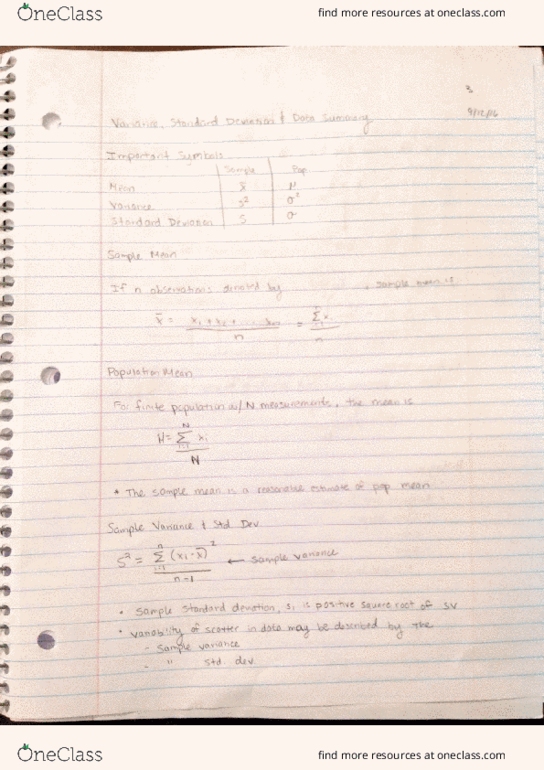 OneClass
find more resources at oneclass.com
3
9/12/16
Variance, Standard Deviation & Data Summary
Important Symbols
Sample Pop
Mean x̄ μ
Variance s² σ²
Standard Deviation s σ
Sample Mean
If n observations denoted by , sample mean is
x̄ = x₁ + x₂ + ... xₙ / n = Σ xᵢ / n
Population Mean
For finite population w/ N measurements, the mean is
μ = Σ_{i=1}^{N} xᵢ / N
* The sample mean is a reasonable estimate of pop mean
Sample Variance & Std Dev
S² = Σ_{i=1}^{n} (xᵢ - x̄)² / n-1 ← sample variance
• Sample standard deviation, s, is positive square root of SV
• variability of scatter in data may be described by the
- sample variance
- " std. dev.
OneClass
find more resources at oneclass.com